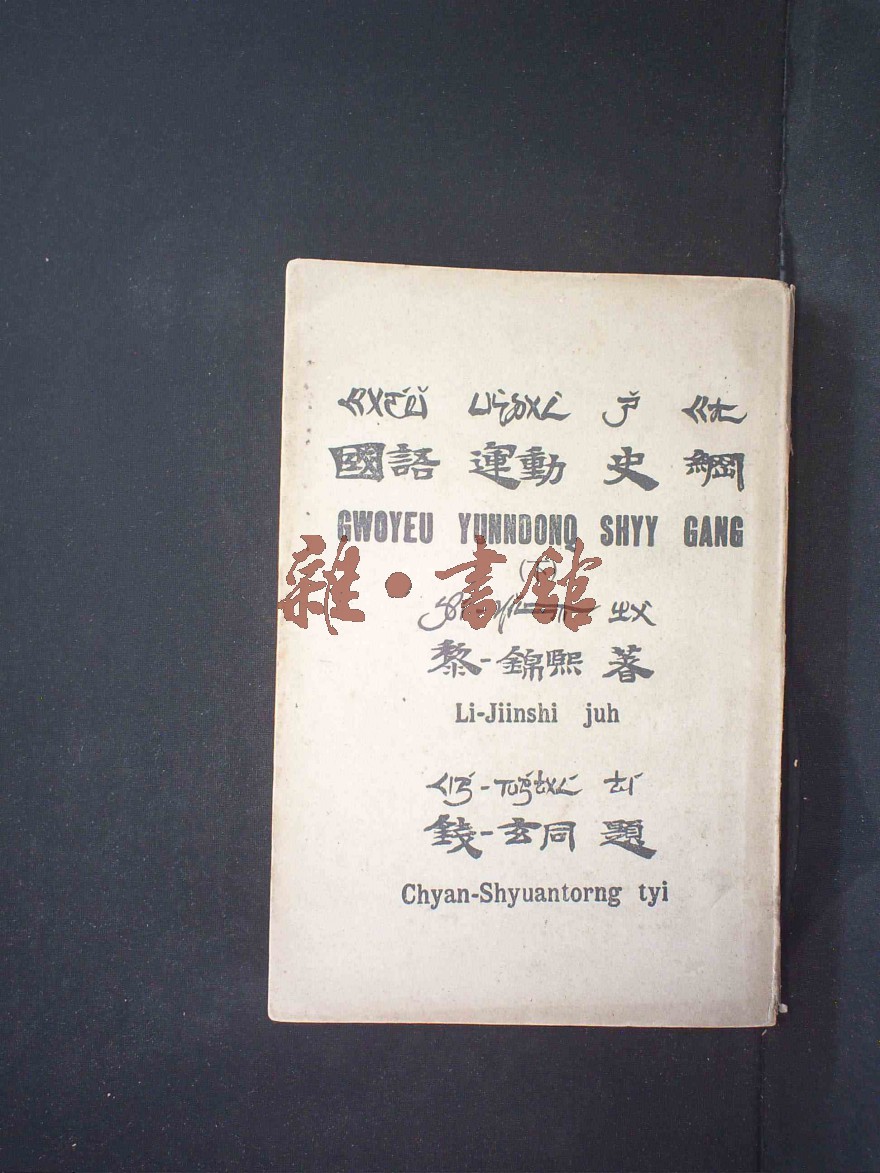 ㄍㄨㄛˊㄩˇ ㄩㄣˋㄉㄨㄥˋ ㄕˇ ㄍㄤ
國語 運動 史 綱
GWOYEU YUNNDONQ SHYY GANG
(下)
雜·書館
ㄓㄨˋ
黎-錦熙 著
Li-Jiinshi juh
ㄑㄧㄢˊ-ㄒㄩㄢˊㄊㄨㄥˊ ㄊㄧˊ
錢-玄同 題
Chyan-Shyuantorng tyi